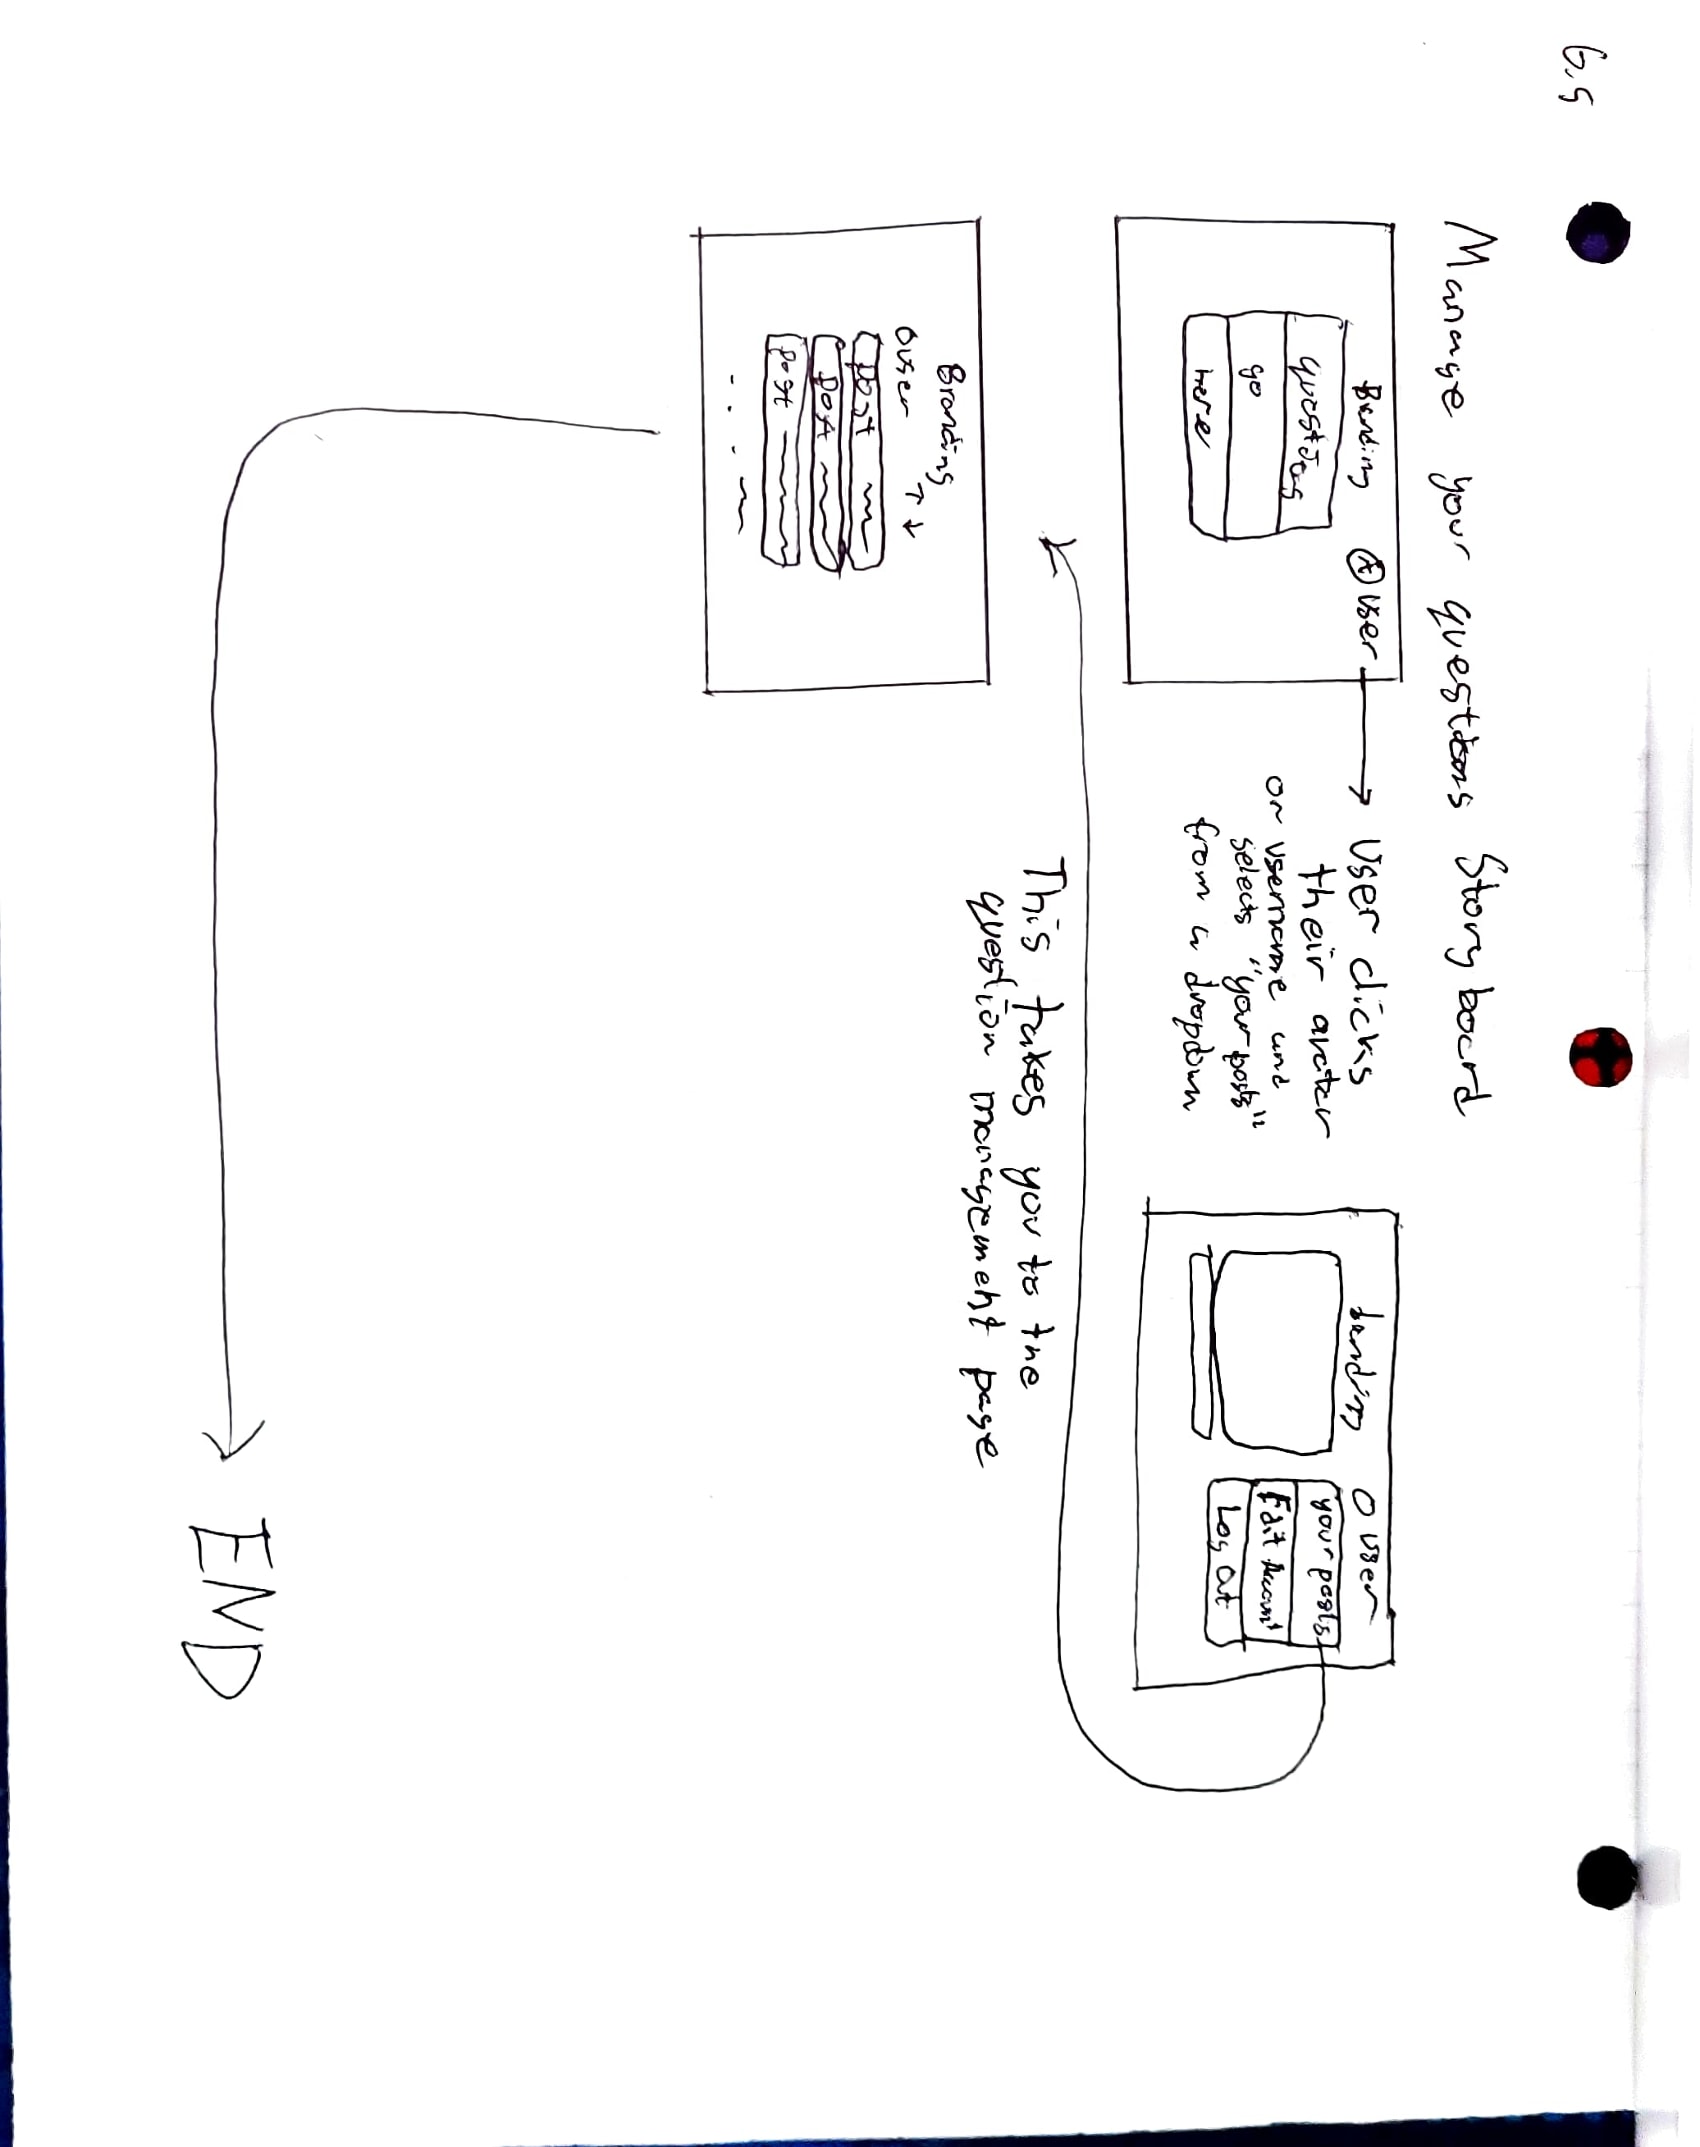 6.5
Manage your questions Storyboard
Branding
User
questions
go
here
User clicks
their avatar
or username and
selects "your posts"
from a dropdown
branding
User
your posts
Edit Account
Log Out
This takes you to the
question management page
Branding
user ↑ ↓
post
post
post
...
END